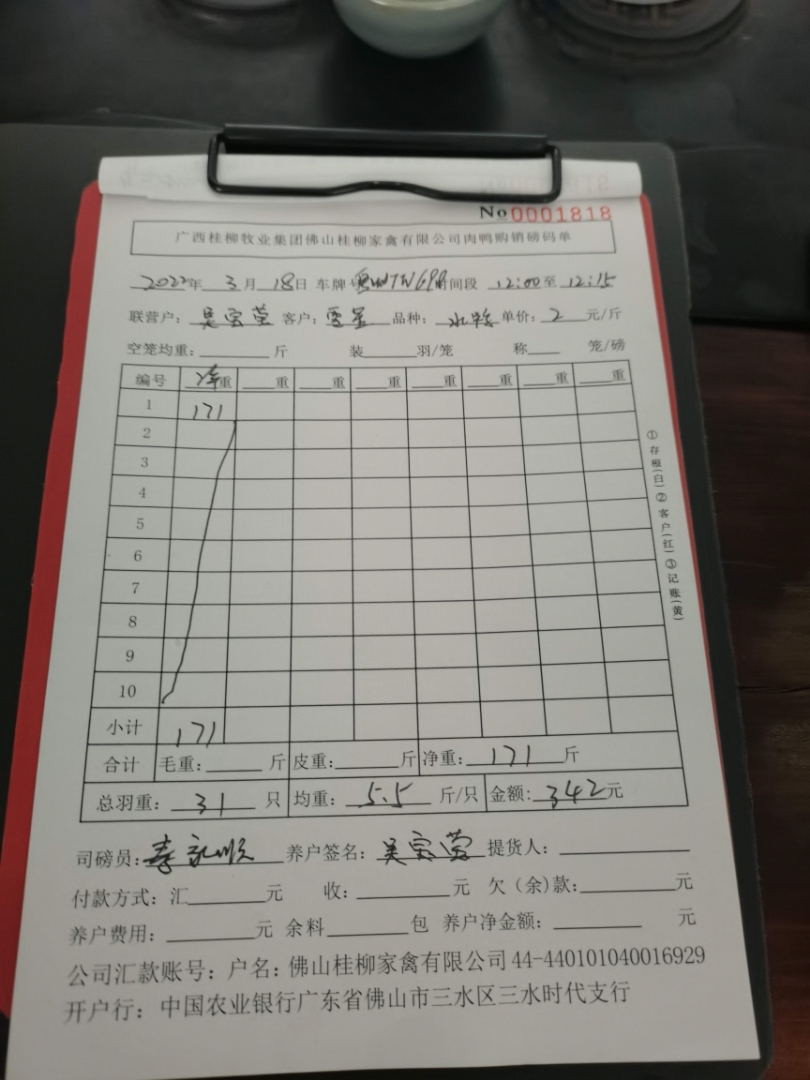 No 0001818
广西桂柳牧业集团佛山桂柳家禽有限公司肉鸭购销磅码单
2022年 3月 18日 车牌 时间段 12:00至 12:15
联营户: 吴宗莹 客户: 雪星 品种: 水鸭 单价: 2 元/斤
空笼均重: 斤 装 羽/笼 称 笼/磅
编号 净重 重 重 重 重 重 重 重
1 171
2
3
4
5
6
7
8
9
10
小计 171
合计 毛重: 斤 皮重: 斤 净重: 171 斤
总羽重: 31 只 均重: 5.5 斤/只 金额: 342元
司磅员: 李 养户签名: 吴宗莹 提货人:
付款方式: 汇 元 收: 元 欠(余)款: 元
养户费用: 元 余料 包 养户净金额: 元
公司汇款账号: 户名: 佛山桂柳家禽有限公司 44-440101040016929
开户行: 中国农业银行广东省佛山市三水区三水时代支行
①存根(白)②客户(红)③记账(黄)